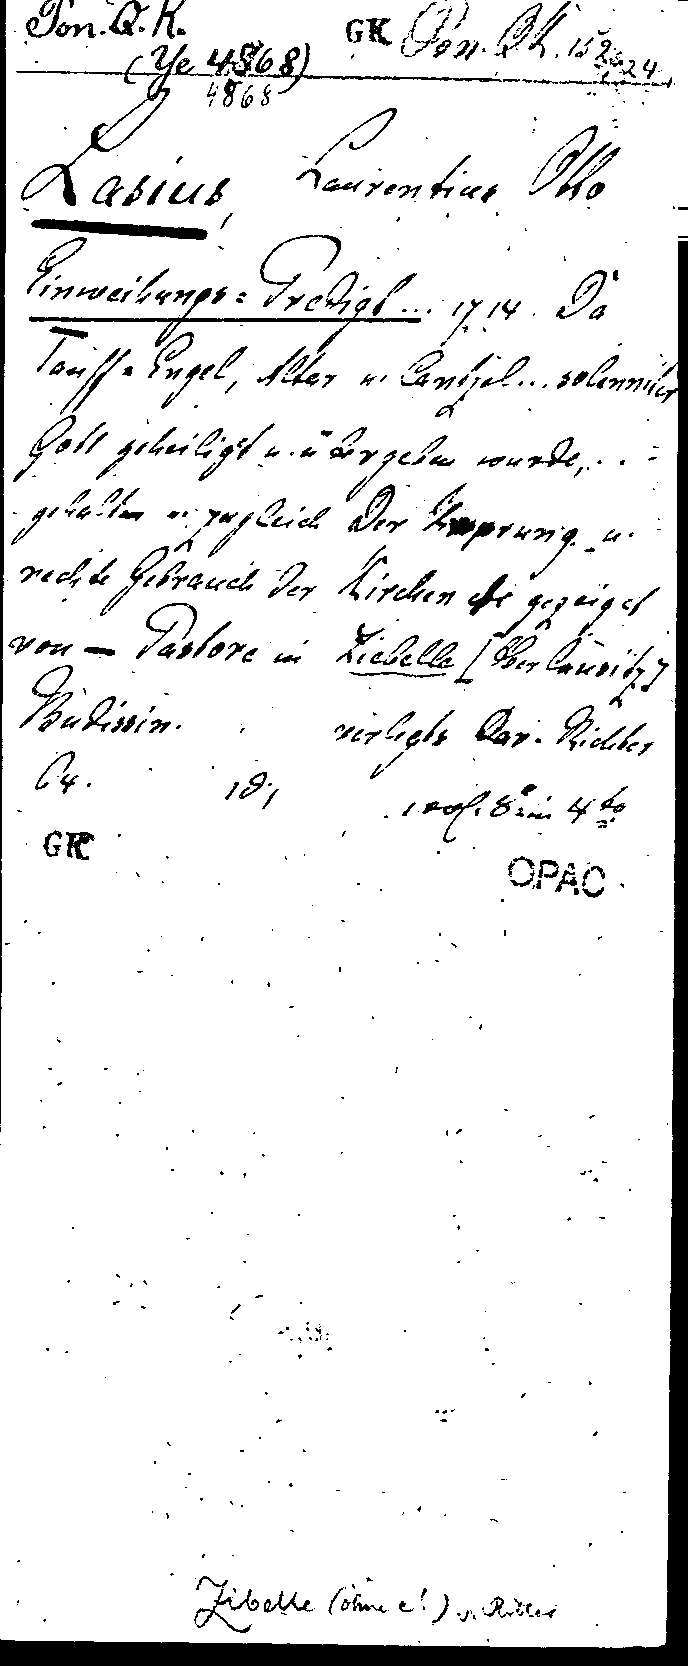 Pon. Q. K. GK Pon. QK. 152, 24
(Ye 4868)
4868
Lasius, Laurentius Otto
Einweihungs=Predigt ... 1714. Da
Tauff=Engel, Altar u. Cantzel ... solenniter
Gott geheiligt u. übergeben wurde, ...
gehalten u. zugleich Der Ursprung u.
rechte Gebrauch der Kirchen gezeiget
von — Pastore in Ziebelle [Oberlausitz]
Budissin. verlegts Dav. Richter
GK
OPAC
Zibelle (ohne e!) s. Ritter